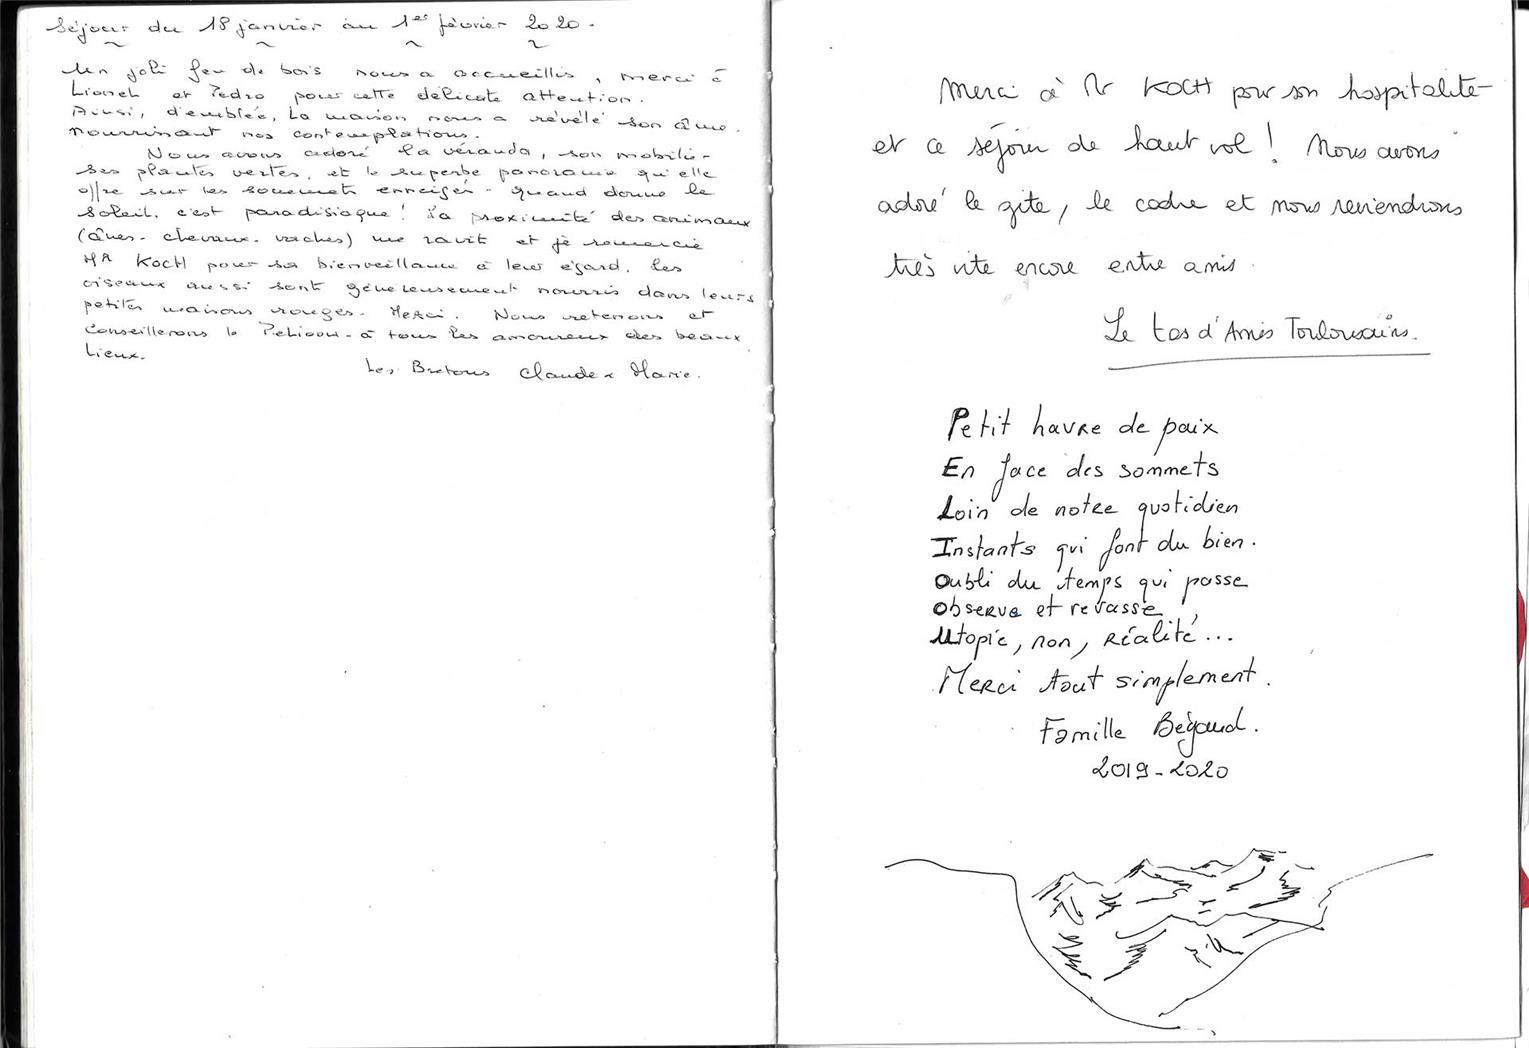 Séjour du 18 janvier au 1er février 2020.
Un joli feu de bois nous a accueillis, merci à
Lionel et Pedro pour cette délicate attention.
Ainsi, d'emblée, la maison nous a révélé son âme.
nourrissant nos contemplations.
Nous avons adoré la véranda, son mobilier
ses plantes vertes, et le superbe panorama qu'elle
offre sur les sommets enneigés - quand donne le
soleil, c'est paradisiaque ! La proximité des animaux
(ânes - chevaux - vaches) me ravit et je remercie
MR KOCH pour sa bienveillance à leur égard. Les
oiseaux aussi sont généreusement nourris dans leurs
petites maisons rouges. Merci. Nous retenons et
conseillerons le Peliou - à tous les amoureux des beaux
lieux.
Les Bretons Claude & Marie.
Merci à Mr KOCH pour son hospitalité
et ce séjour de haut vol ! Nous avons
adoré le gite, le cadre et nous reviendrons
très vite encore entre amis.
Le tas d'Amis Toulousains.
Petit havre de paix
En face des sommets
Loin de notre quotidien
Instants qui font du bien.
Oubli du temps qui passe
Observe et revasse
Utopie, non, réalité...
Merci tout simplement.
Famille Bégaud.
2019-2020